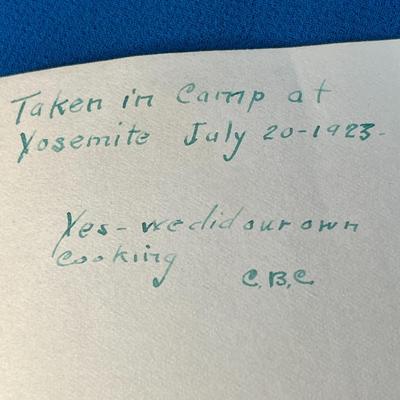 Taken in Camp at
Yosemite July 20-1923-
Yes - we did our own
cooking
C.B.C